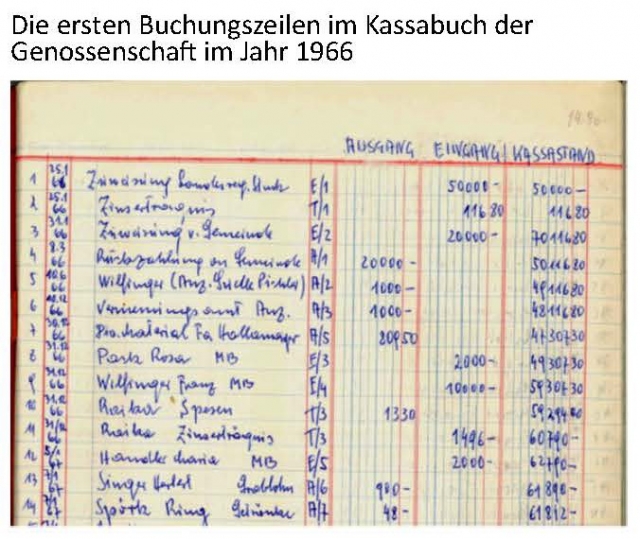 Die ersten Buchungszeilen im Kassabuch der
Genossenschaft im Jahr 1966
AUSGANG EINGANG KASSASTAND
1 25.1 66 Zuweisung Landesreg. E/1 50000- 50000-
2 25.1 66 Zinserträgnis T/1 11680 11680
3 31.1 66 Zuweisung v. Gemeinde E/2 20000- 7011680
4 8.3 66 Rückzahlung an Gemeinde A/1 20000- 5011680
5 10.6 66 Wilfinger (Anz. Quelle Pichler) A/2 1000- 4911680
6 10.12 66 Vermessungsamt Anz. A/3 1000- 4811680
7 30.12 66 Büromaterial Fa Hallamayer A/5 80950 4730730
8 31.12 66 Park Rosa MB E/3 2000- 4930730
9 31.12 66 Wilfinger Franz MB E/4 10000- 5930730
10 31.12 66 Raika Spesen T/3 1330 5929400
11 31/12 66 Raika Zinserträgnis T/3 1496- 60790-
12 5/1 67 Handler Maria MB E/5 2000- 62790-
13 7/1 67 Singer Herbert Grablohn A/6 900- 61890-
14 7/1 67 Spörk Ring Getränke A/7 48- 61812-